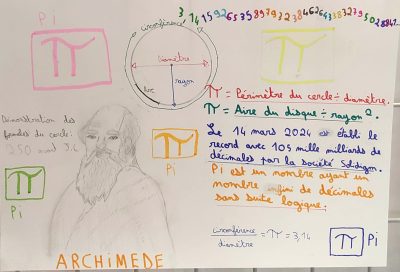 Pi
3,14159265358979323846264338327950288
circonférence
diamètre
arc
rayon
π = Périmètre du cercle ÷ diamètre.
π = Aire du disque ÷ rayon 2.
Démonstration des
du cercle:
250 avant J.C
Le 14 mars 2024 est établi le
record avec 105 mille milliards de
décimales par la société Solidigm.
Pi est un nombre ayant un
nombre infini de décimales
sans suite logique.
π
Pi
π
Pi
π
circonférence
diamètre
= π = 3,14
π
Pi
ARCHIMEDE